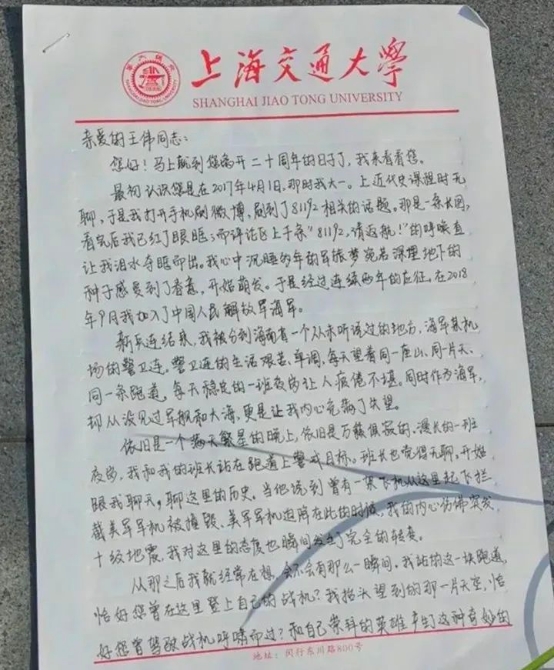 上海交通大學
SHANGHAI JIAO TONG UNIVERSITY
亲爱的王伟同志:
您好!马上就到您离开二十周年的日子了,我来看看您。
最初认识您是在2017年4月1日,那时我大一。上近代史课程时无
聊,于是我打开手机刷微博,刷到了81192相关的话题。那是一条长图,
看完后我已红了眼眶;而评论区上千条“81192,请返航!”的呼唤直
让我泪水夺眶而出。我心中沉睡多年的军旅梦宛若深埋地下的
种子感受到了春意,开始萌发。于是经过连续两年的应征,在2018
年9月我加入了中国人民解放军海军。
新兵连结束,我被分到海南省一个从未听说过的地方,海军某机
场的警卫连。警卫连的生活艰苦、单调,每天望着同一座山、同一片天、
同一条跑道,每天稳定的一班夜岗让人疲倦不堪。同时作为海军,
却从没见过军舰和大海,更是让我内心充满了失望。
依旧是一个满天繁星的晚上,依旧是万籁俱寂的、漫长的一班
夜岗,我和我的班长站在跑道上警戒目标。班长也觉得无聊,开始
跟我聊天,聊这里的历史。当他说到曾有一架飞机从这里起飞拦
截美军军机被撞毁、美军军机迫降在此的时候,我的内心仿佛突发
十级地震,我对这里的态度也瞬间发生了完全的转变。
从那之后我就经常在想,会不会有那么一瞬间,我站的这一块跑道,
恰好您曾在这里登上自己的战机?我抬头望到的那一片天空,恰
好您曾驾驶战机呼啸而过?和自己崇拜的英雄产生了这种奇妙的
地址:闵行东川路800号